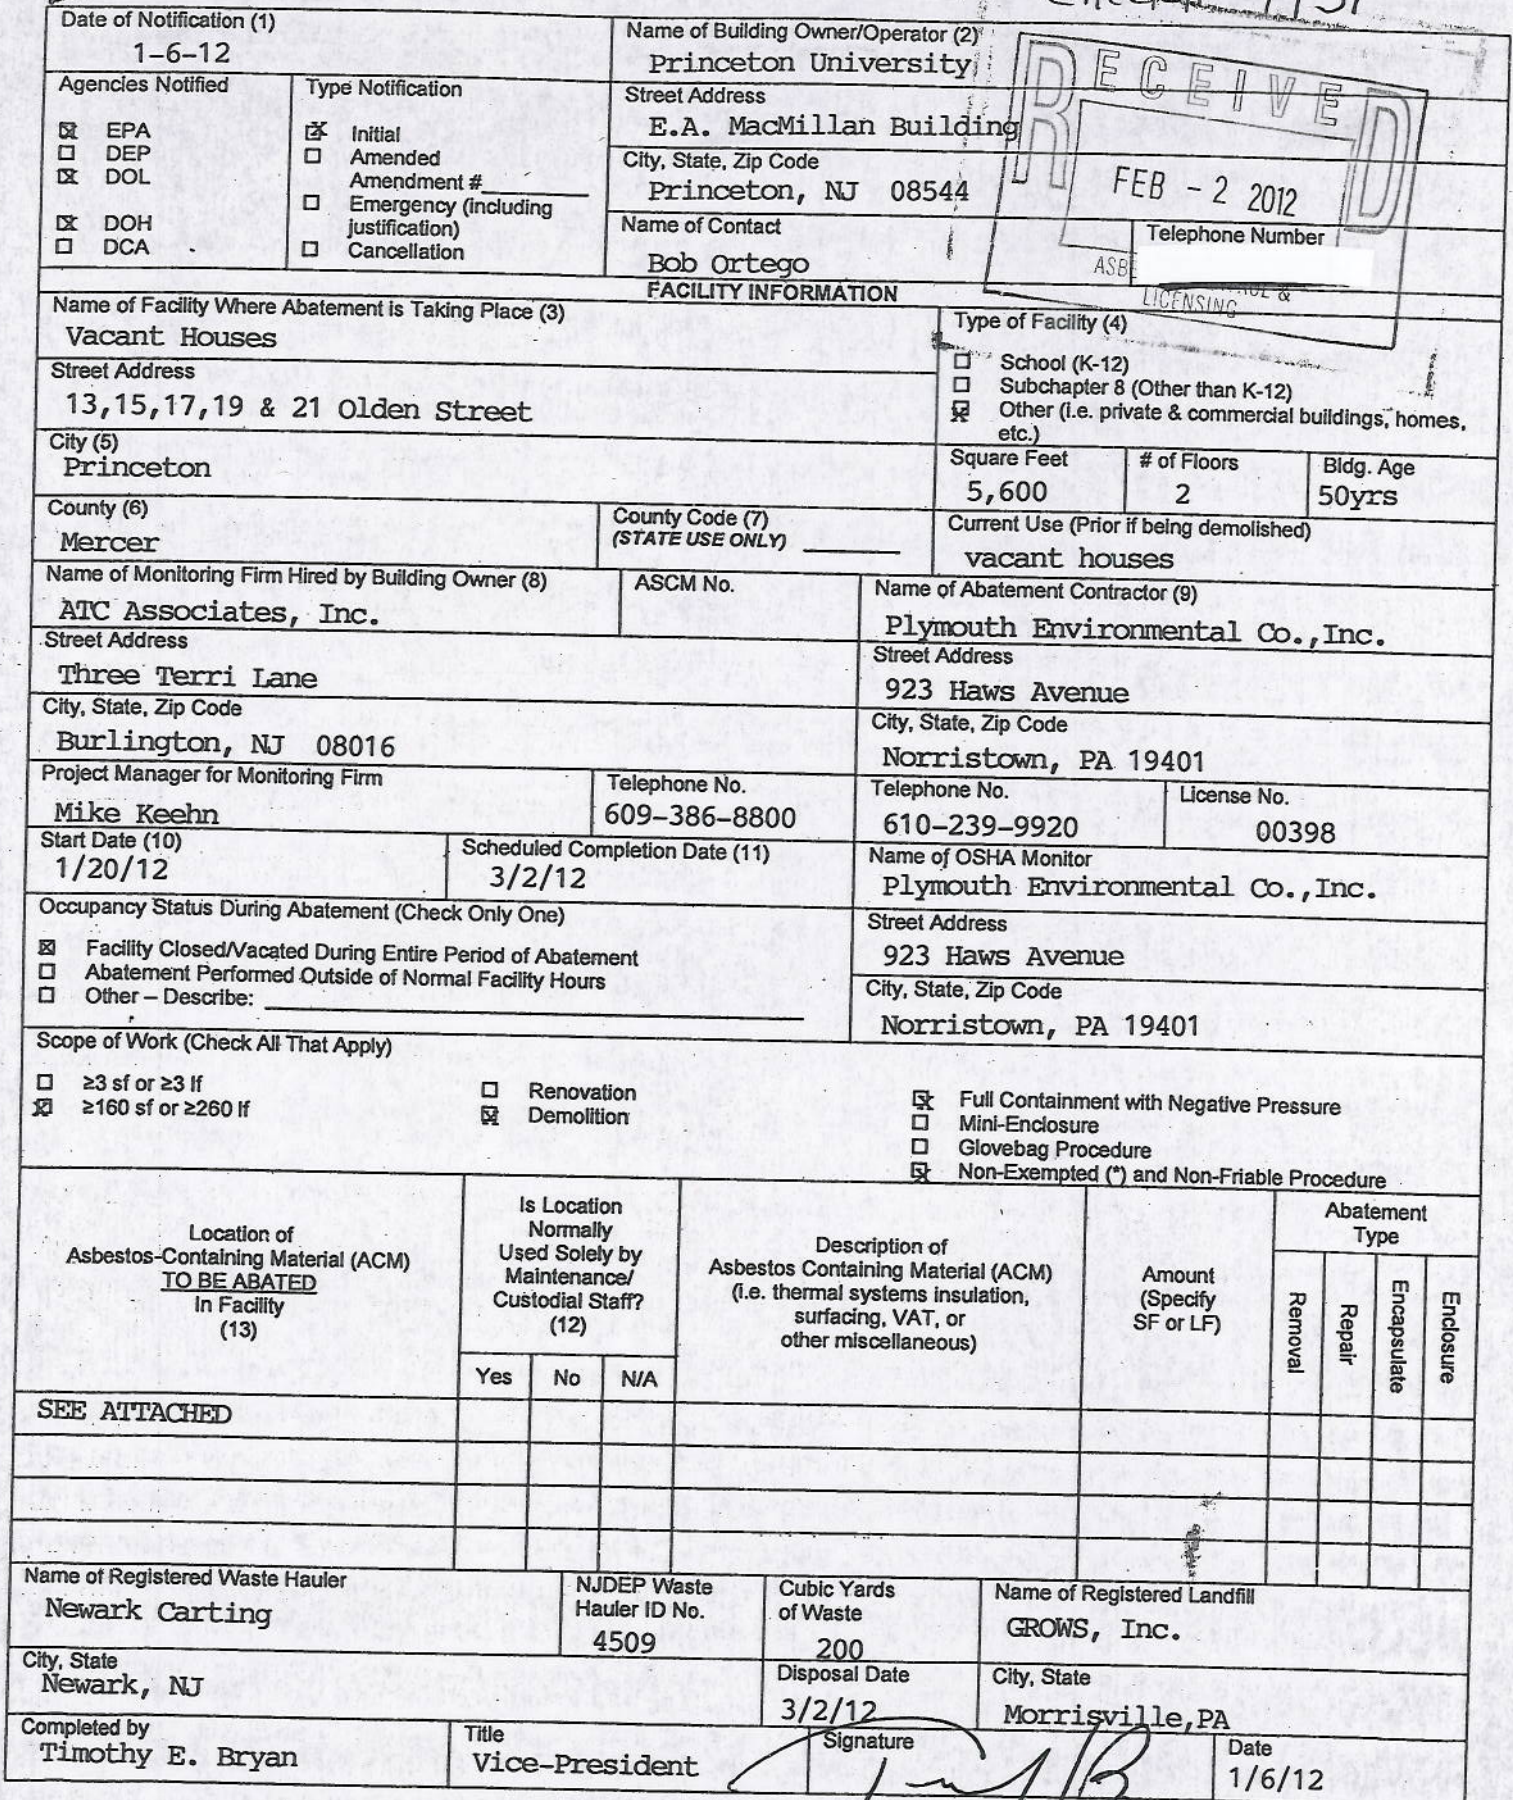 Date of Notification (1)
1-6-12
Name of Building Owner/Operator (2)
Princeton University
Agencies Notified
☒ EPA
☐ DEP
☒ DOL
☒ DOH
☐ DCA
Type Notification
☒ Initial
☐ Amended
Amendment #
☐ Emergency (including
justification)
☐ Cancellation
Street Address
E.A. MacMillan Building
City, State, Zip Code
Princeton, NJ 08544
Name of Contact
Bob Ortego
Telephone Number
RECEIVED
FEB - 2 2012
LICENSING
FACILITY INFORMATION
Name of Facility Where Abatement is Taking Place (3)
Vacant Houses
Street Address
13,15,17,19 & 21 Olden Street
City (5)
Princeton
County (6)
Mercer
County Code (7)
(STATE USE ONLY)
Type of Facility (4)
☐ School (K-12)
☐ Subchapter 8 (Other than K-12)
☒ Other (i.e. private & commercial buildings, homes,
etc.)
Square Feet
5,600
# of Floors
2
Bldg. Age
50yrs
Current Use (Prior if being demolished)
vacant houses
Name of Monitoring Firm Hired by Building Owner (8)
ATC Associates, Inc.
ASCM No.
Street Address
Three Terri Lane
City, State, Zip Code
Burlington, NJ 08016
Project Manager for Monitoring Firm
Mike Keehn
Telephone No.
609-386-8800
Name of Abatement Contractor (9)
Plymouth Environmental Co.,Inc.
Street Address
923 Haws Avenue
City, State, Zip Code
Norristown, PA 19401
Telephone No.
610-239-9920
License No.
00398
Start Date (10)
1/20/12
Scheduled Completion Date (11)
3/2/12
Name of OSHA Monitor
Plymouth Environmental Co.,Inc.
Street Address
923 Haws Avenue
City, State, Zip Code
Norristown, PA 19401
Occupancy Status During Abatement (Check Only One)
☒ Facility Closed/Vacated During Entire Period of Abatement
☐ Abatement Performed Outside of Normal Facility Hours
☐ Other – Describe:
Scope of Work (Check All That Apply)
☐ ≥3 sf or ≥3 lf
☒ ≥160 sf or ≥260 lf
☐ Renovation
☒ Demolition
☒ Full Containment with Negative Pressure
☐ Mini-Enclosure
☐ Glovebag Procedure
☒ Non-Exempted (*) and Non-Friable Procedure
Location of
Asbestos-Containing Material (ACM)
TO BE ABATED
In Facility
(13)
Is Location
Normally
Used Solely by
Maintenance/
Custodial Staff?
(12)
Yes
No
N/A
Description of
Asbestos Containing Material (ACM)
(i.e. thermal systems insulation,
surfacing, VAT, or
other miscellaneous)
Amount
(Specify
SF or LF)
Abatement
Type
Removal
Repair
Encapsulate
Enclosure
SEE ATTACHED
Name of Registered Waste Hauler
Newark Carting
NJDEP Waste
Hauler ID No.
4509
Cubic Yards
of Waste
200
Name of Registered Landfill
GROWS, Inc.
City, State
Newark, NJ
Disposal Date
3/2/12
City, State
Morrisville,PA
Completed by
Timothy E. Bryan
Title
Vice-President
Signature
Date
1/6/12